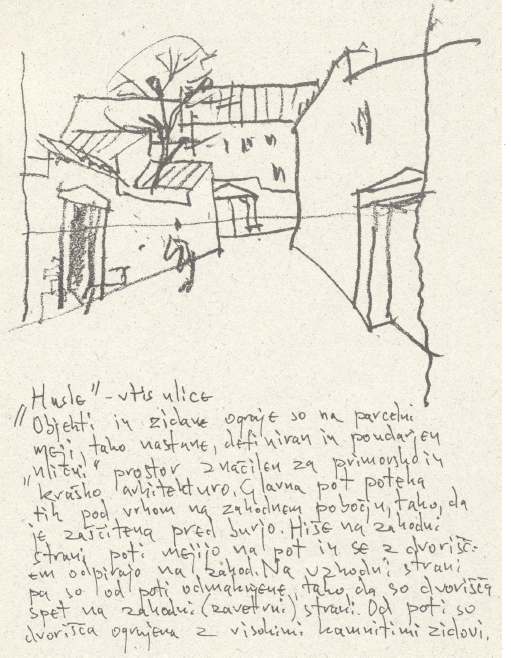 "Husle" - vtis ulice
Objekti in zidane ograje so na parcelni
meji, tako nastane, definiran in poudarjen
"ulični" prostor značilen za primorsko in
kraško arhitekturo. Glavna pot poteka
tik pod vrhom na zahodnem pobočju, tako, da
je zaščitena pred burjo. Hiše na zahodni
strani poti mejijo na pot in se z dvorišč-
em odpirajo na zahod. Na vzhodni strani
pa so od poti odmaknjene, tako, da so dvorišča
spet na zahodni (zavetrni) strani. Od poti so
dvorišča ograjena z visokimi kamnitimi zidovi.